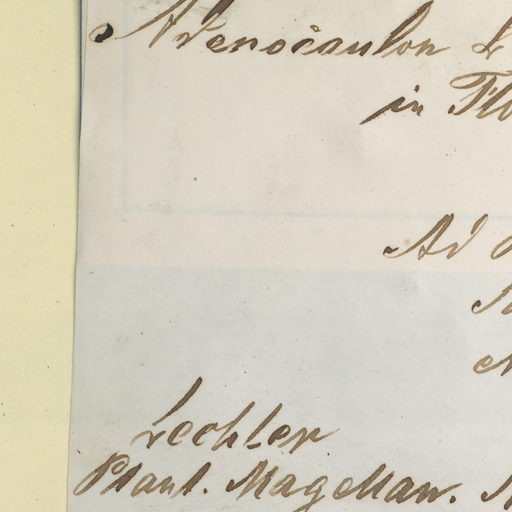 Adenocaulon
in
Ad
Lechler
Plant. Magellan.